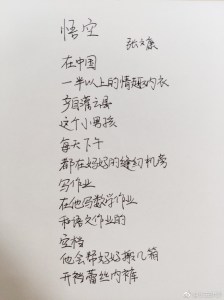 悟空
张文康
在中国
一半以上的情趣内衣
来自灌云县
这个小男孩
每天下午
都在妈妈的缝纫机旁
写作业
在他写数学作业
和语文作业的
空档
他会帮妈妈搬几箱
开裆蕾丝内裤